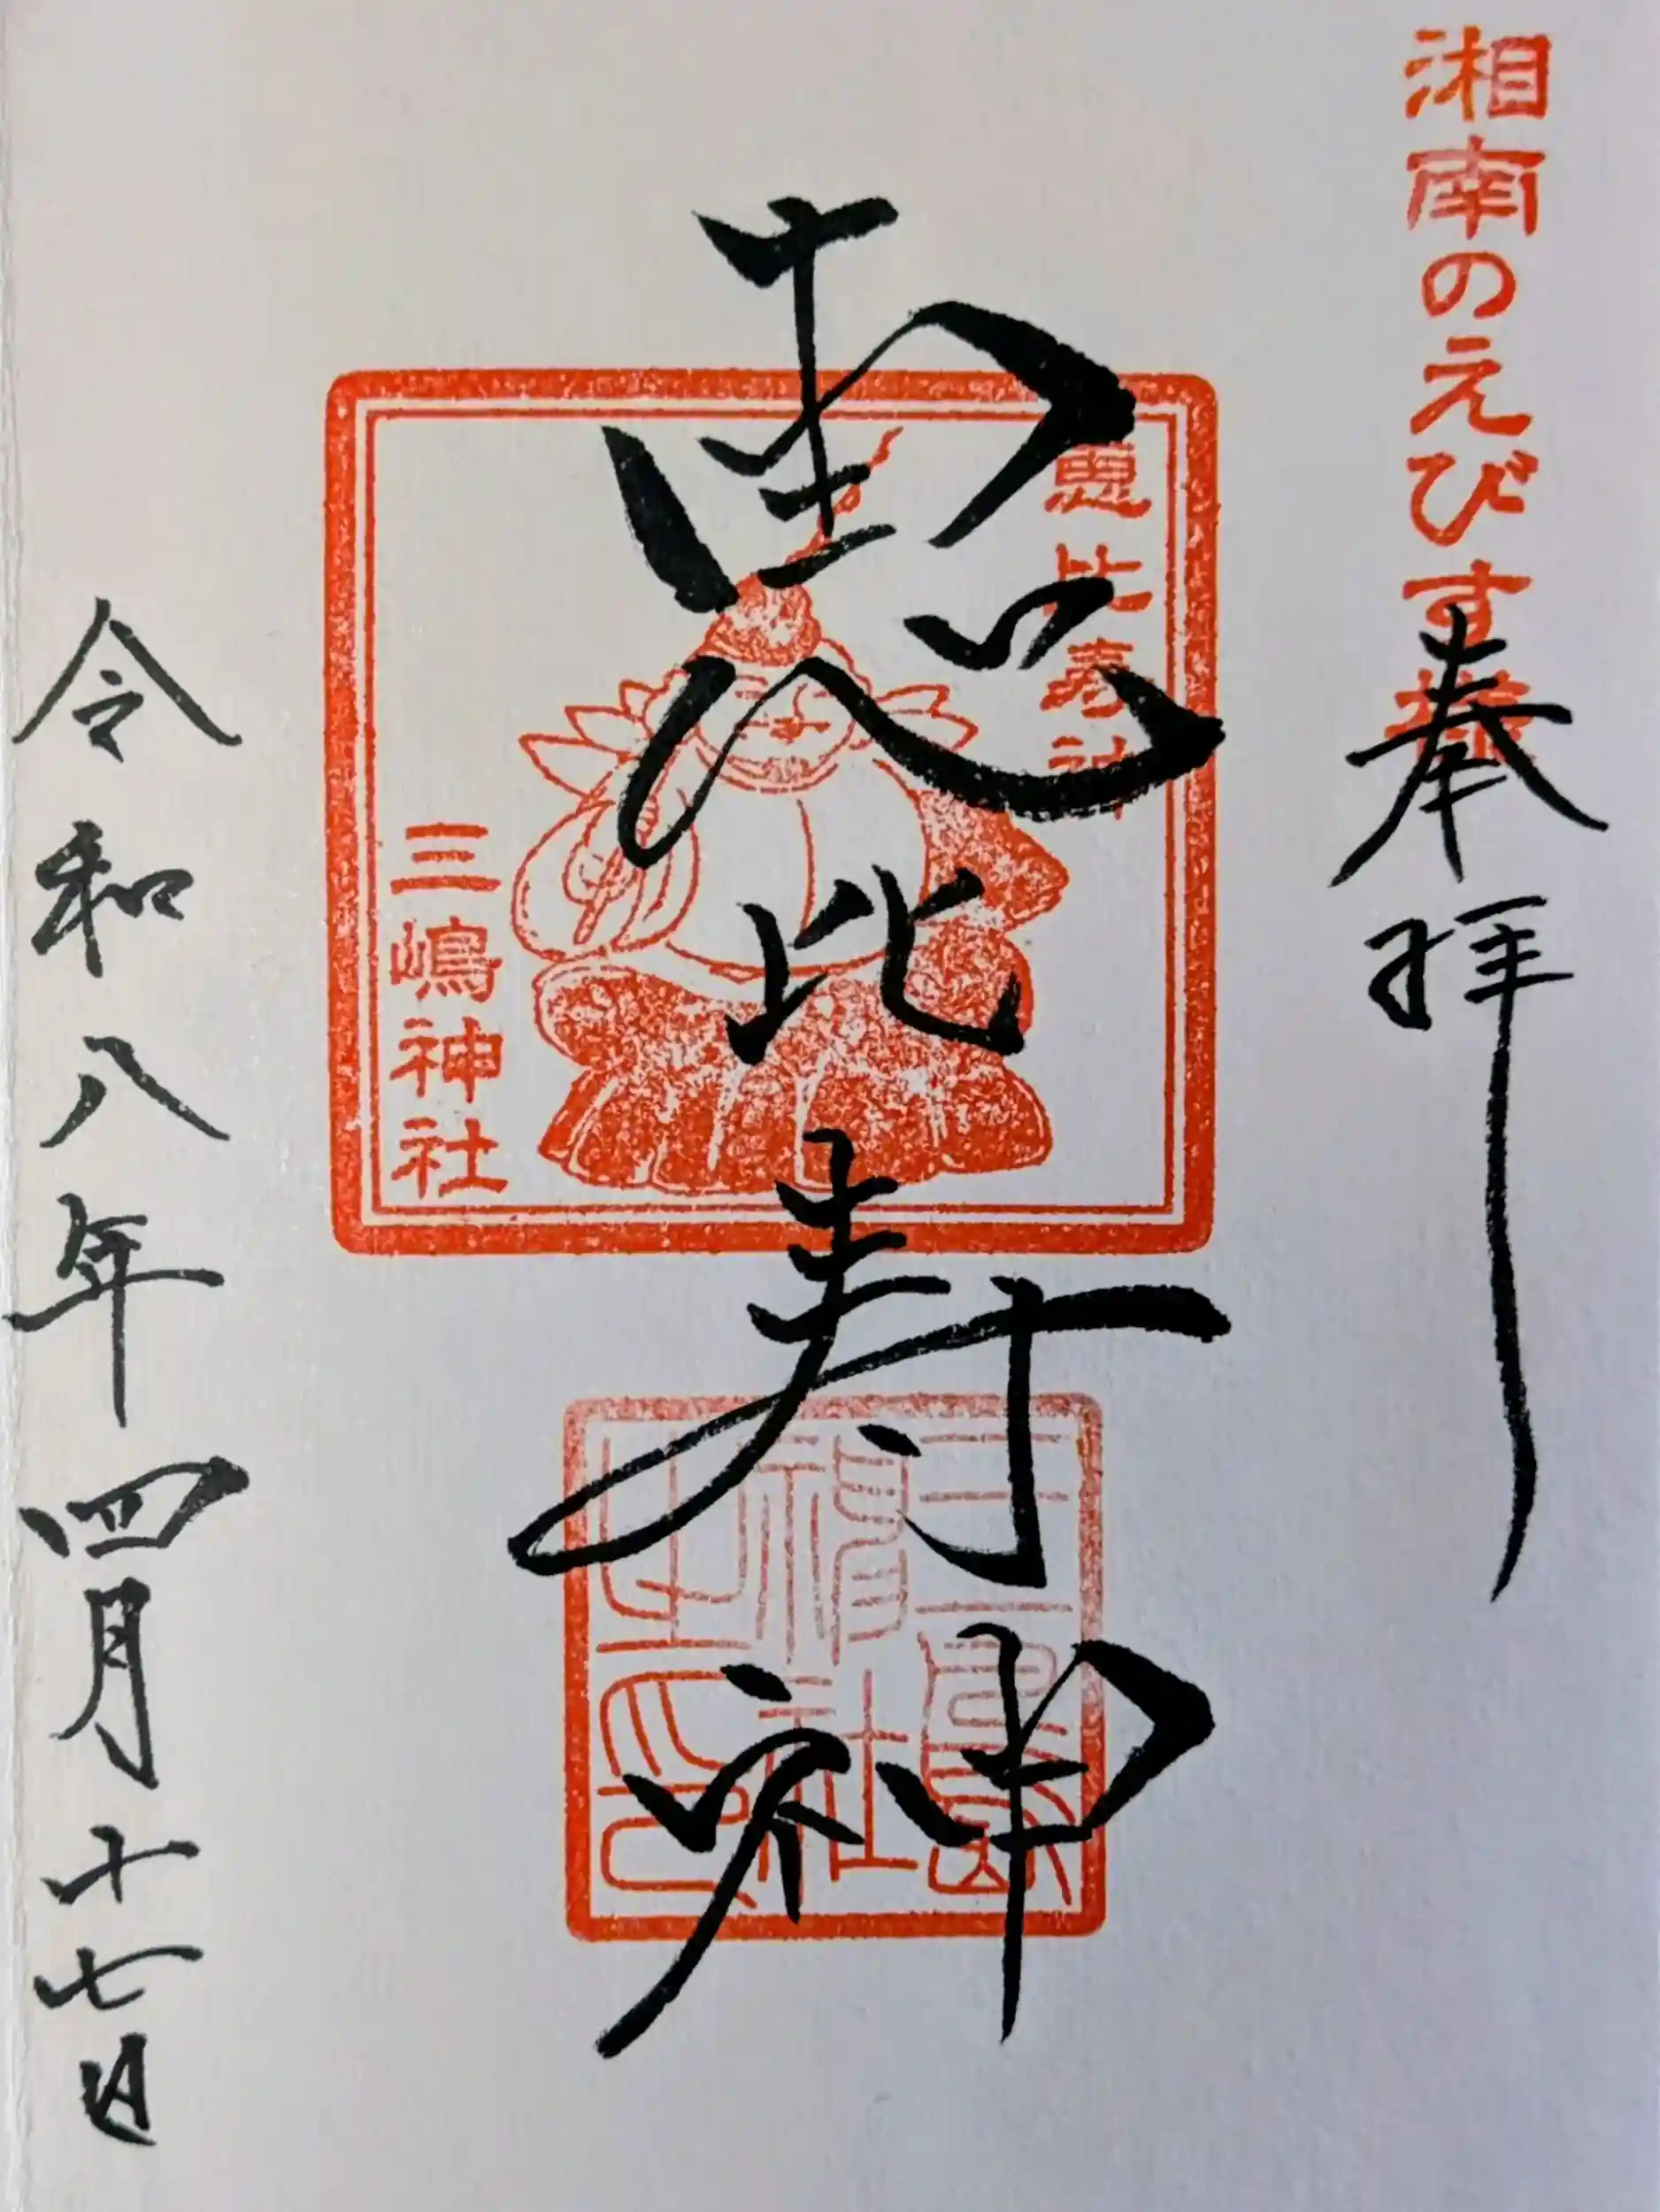 湘南のえびす様
奉拝
恵比寿神
恵比寿神
三嶋神社
三嶋神社之印
令和八年四月十七日